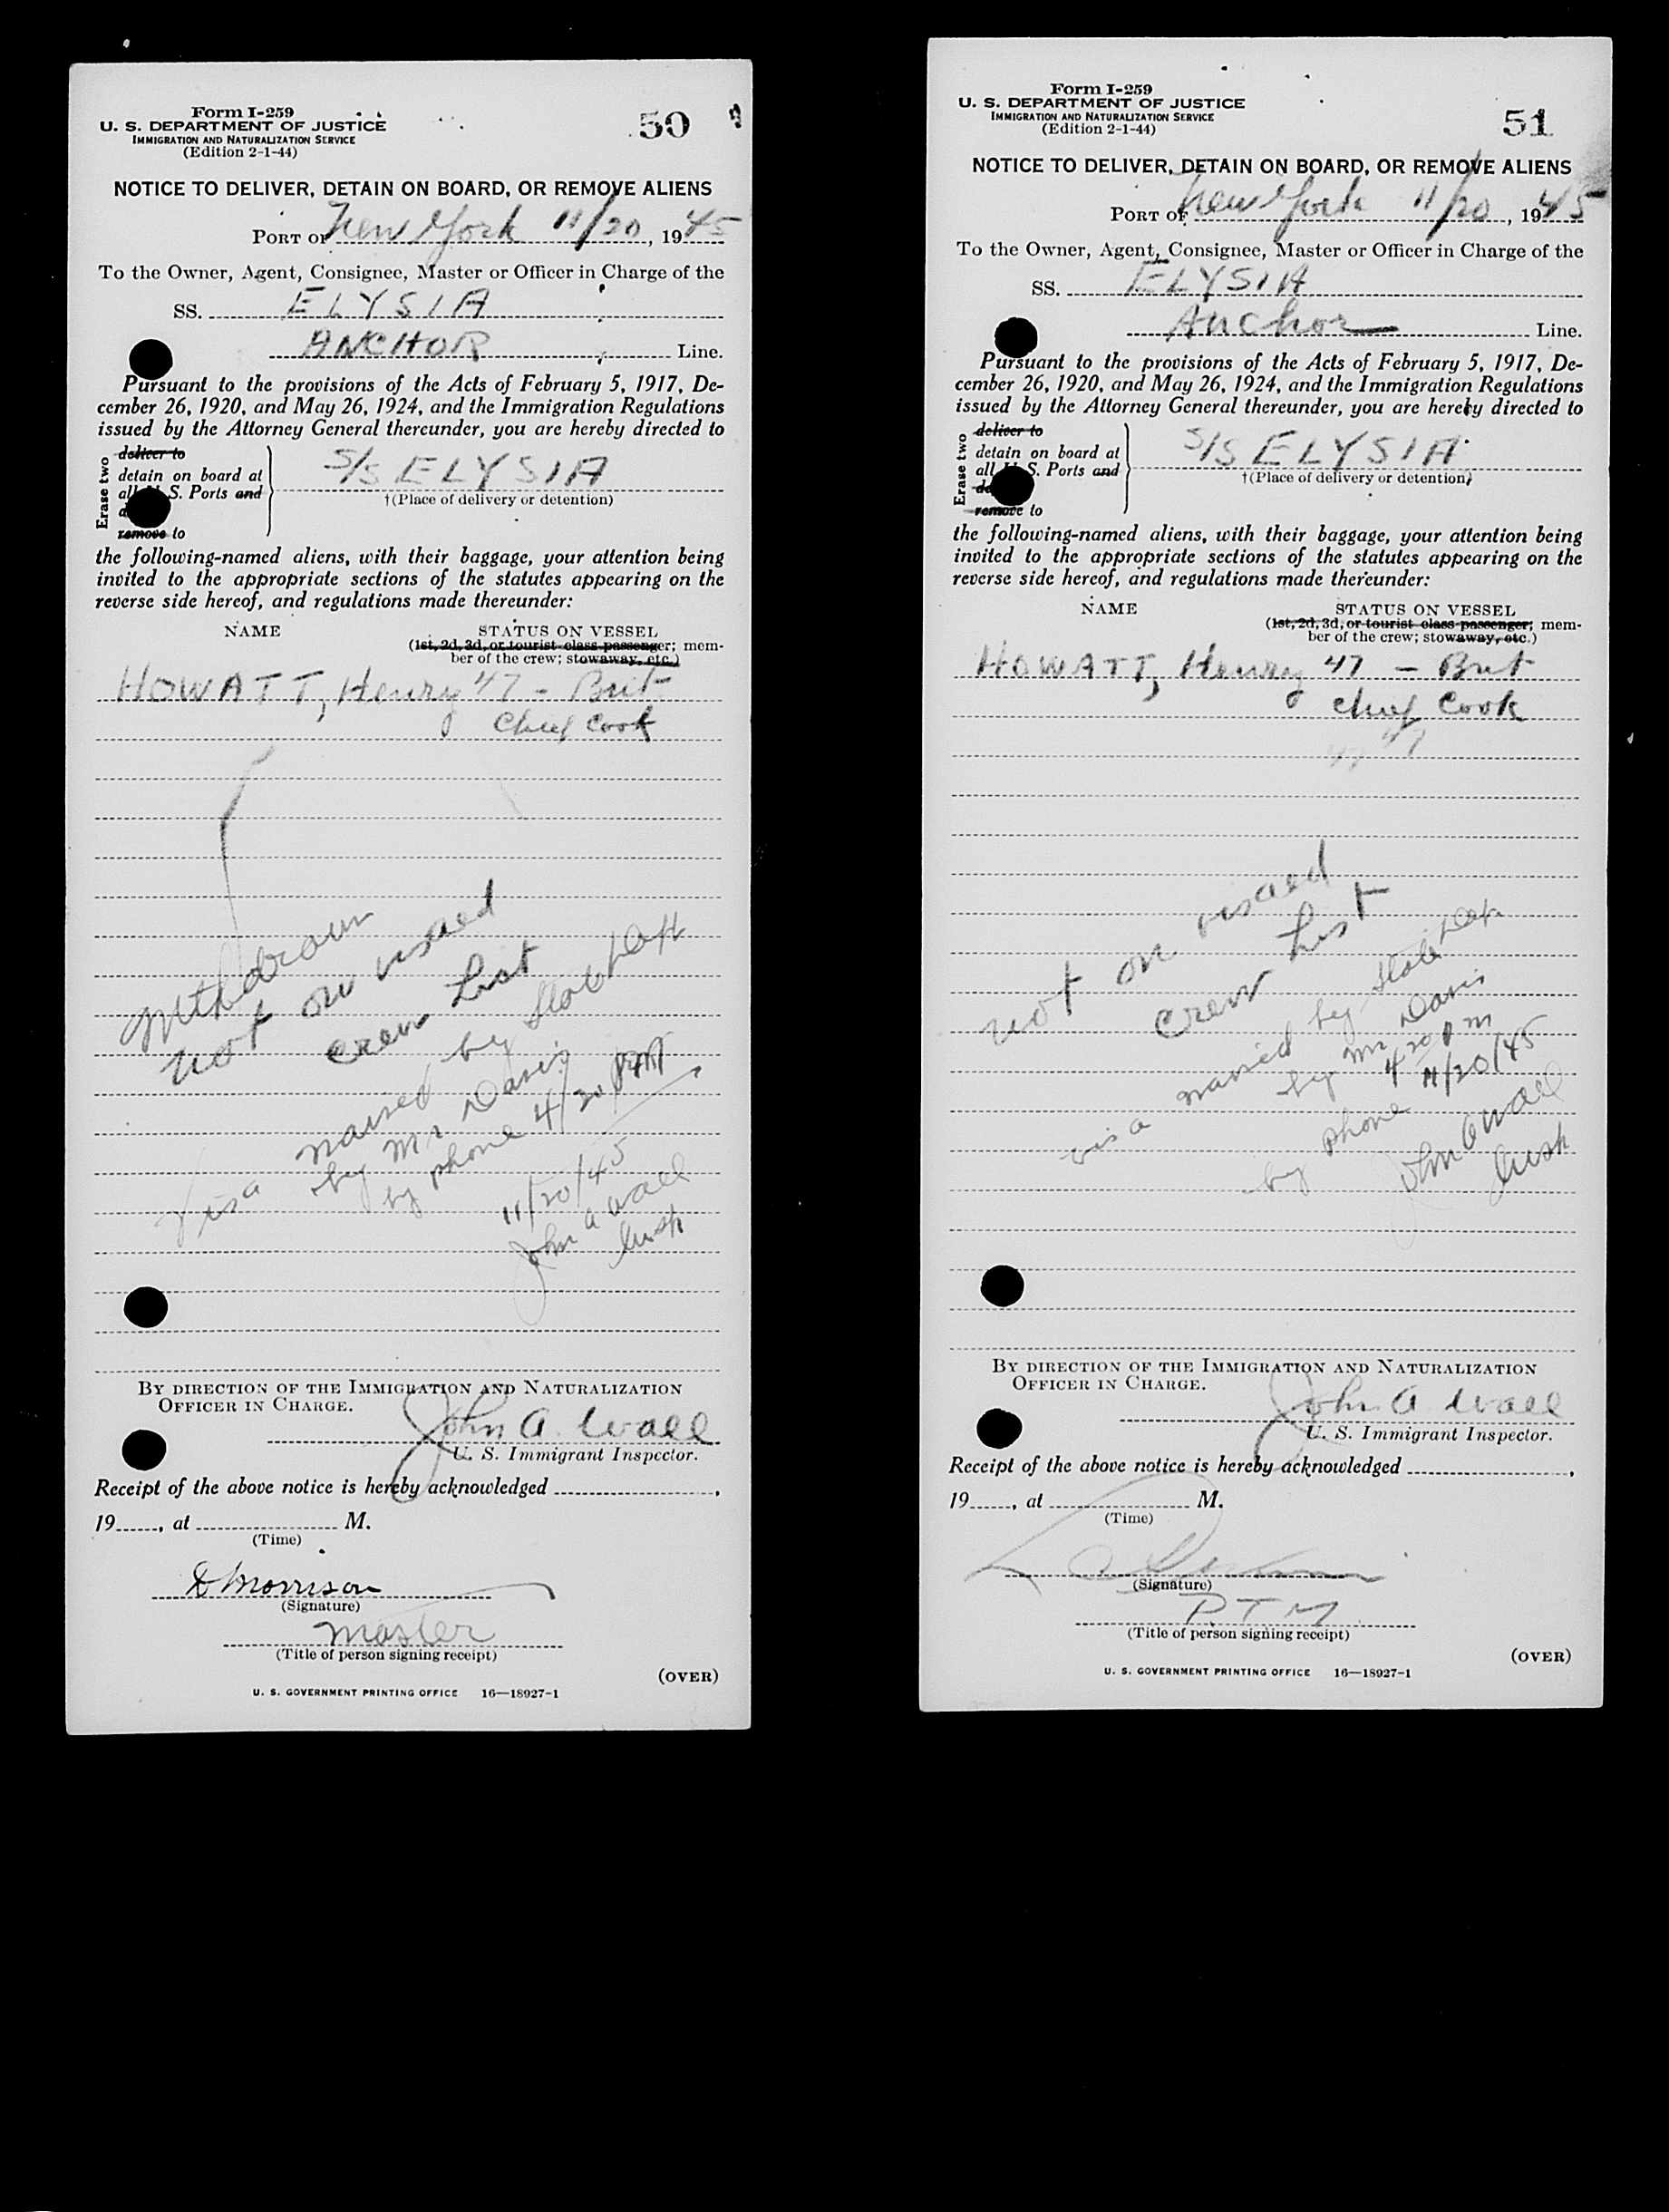 Form I-259
U. S. DEPARTMENT OF JUSTICE
IMMIGRATION AND NATURALIZATION SERVICE
(Edition 2-1-44)
50
NOTICE TO DELIVER, DETAIN ON BOARD, OR REMOVE ALIENS
PORT OF New York 11/20, 1945
To the Owner, Agent, Consignee, Master or Officer in Charge of the
SS. ELYSIA
ANCHOR Line.
Pursuant to the provisions of the Acts of February 5, 1917, De-
cember 26, 1920, and May 26, 1924, and the Immigration Regulations
issued by the Attorney General thereunder, you are hereby directed to
Erase two
deliver to
detain on board at
all S. Ports and
remove to
S/S ELYSIA
†(Place of delivery or detention)
the following-named aliens, with their baggage, your attention being
invited to the appropriate sections of the statutes appearing on the
reverse side hereof, and regulations made thereunder:
NAME STATUS ON VESSEL
(1st, 2d, 3d, or tourist class passenger; mem-
ber of the crew; stowaway, etc.)
HOWATT, Henry 47 - Brit
Chief Cook
Withdrawn
not on visaed
crew List
Visa waived by State Dept
by Mr Davis
by phone 4/20 PM
11/20/45
John A Wall
Insp
BY DIRECTION OF THE IMMIGRATION AND NATURALIZATION
OFFICER IN CHARGE.
John A. Wall
U. S. Immigrant Inspector.
Receipt of the above notice is hereby acknowledged ,
19 , at M.
(Time)
D Morrison
(Signature)
Master
(Title of person signing receipt)
(OVER)
U. S. GOVERNMENT PRINTING OFFICE 16—18927-1
Form I-259
U. S. DEPARTMENT OF JUSTICE
IMMIGRATION AND NATURALIZATION SERVICE
(Edition 2-1-44)
51
NOTICE TO DELIVER, DETAIN ON BOARD, OR REMOVE ALIENS
PORT OF New York 11/20, 1945
To the Owner, Agent, Consignee, Master or Officer in Charge of the
SS. ELYSIA
Anchor Line.
Pursuant to the provisions of the Acts of February 5, 1917, De-
cember 26, 1920, and May 26, 1924, and the Immigration Regulations
issued by the Attorney General thereunder, you are hereby directed to
Erase two
deliver to
detain on board at
all U. S. Ports and
remove to
S/S ELYSIA
†(Place of delivery or detention)
the following-named aliens, with their baggage, your attention being
invited to the appropriate sections of the statutes appearing on the
reverse side hereof, and regulations made thereunder:
NAME STATUS ON VESSEL
(1st, 2d, 3d, or tourist class passenger; mem-
ber of the crew; stowaway, etc.)
HOWATT, Henry 47 - Brit
Chief Cook
47 47
not on visaed
crew List
visa waived by State Dept
by Mr Davis
by phone 4 20 P m
11/20/45
John A Wall
Insp
BY DIRECTION OF THE IMMIGRATION AND NATURALIZATION
OFFICER IN CHARGE.
John A. Wall
U. S. Immigrant Inspector.
Receipt of the above notice is hereby acknowledged ,
19 , at M.
(Time)
(Signature)
P.T.M.
(Title of person signing receipt)
(OVER)
U. S. GOVERNMENT PRINTING OFFICE 16—18927-1